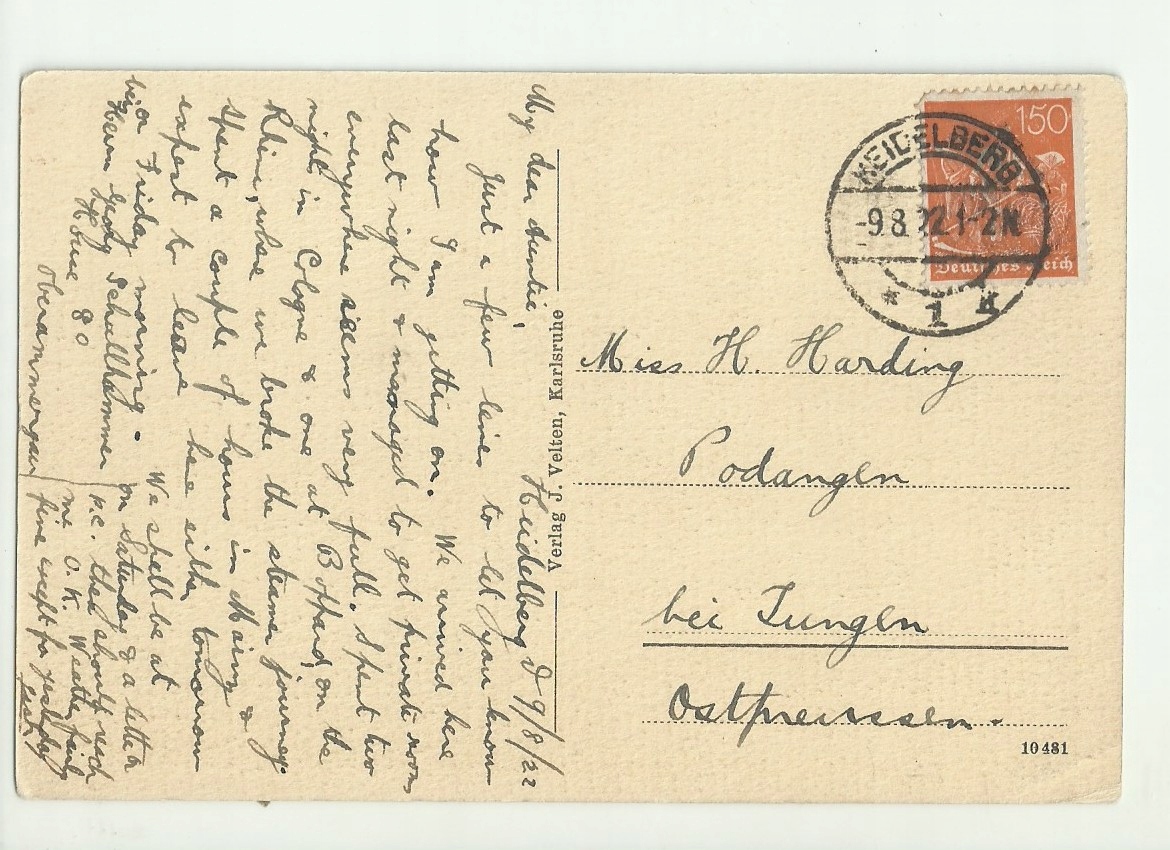 Heidelberg D 9/8/22
My dear Auntie,
Just a few lines to let you know
how I am getting on. We arrived here
last night & managed to get private rooms,
everywhere seems very full. Spent two
nights in Cologne & one at Boppard, on the
Rhine, where we broke the steamer journey.
Spent a couple of hours in Mainz &
expect to leave here either tomorrow
or Friday morning. We shall be at
bei Herrn Georg Schallhammer
House 80
Oberammergau
on Saturday & a letter
p.c. then should reach
me O.K. Weather fairly
fine except for yesterday
Verlag J. Velten, Karlsruhe
150
Deutsches Reich
HEIDELBERG
-9.8.22.1-2N
* 1 k
Miss H. Harding
Podangen
bei Tüngen
Ostpreussen.
10481